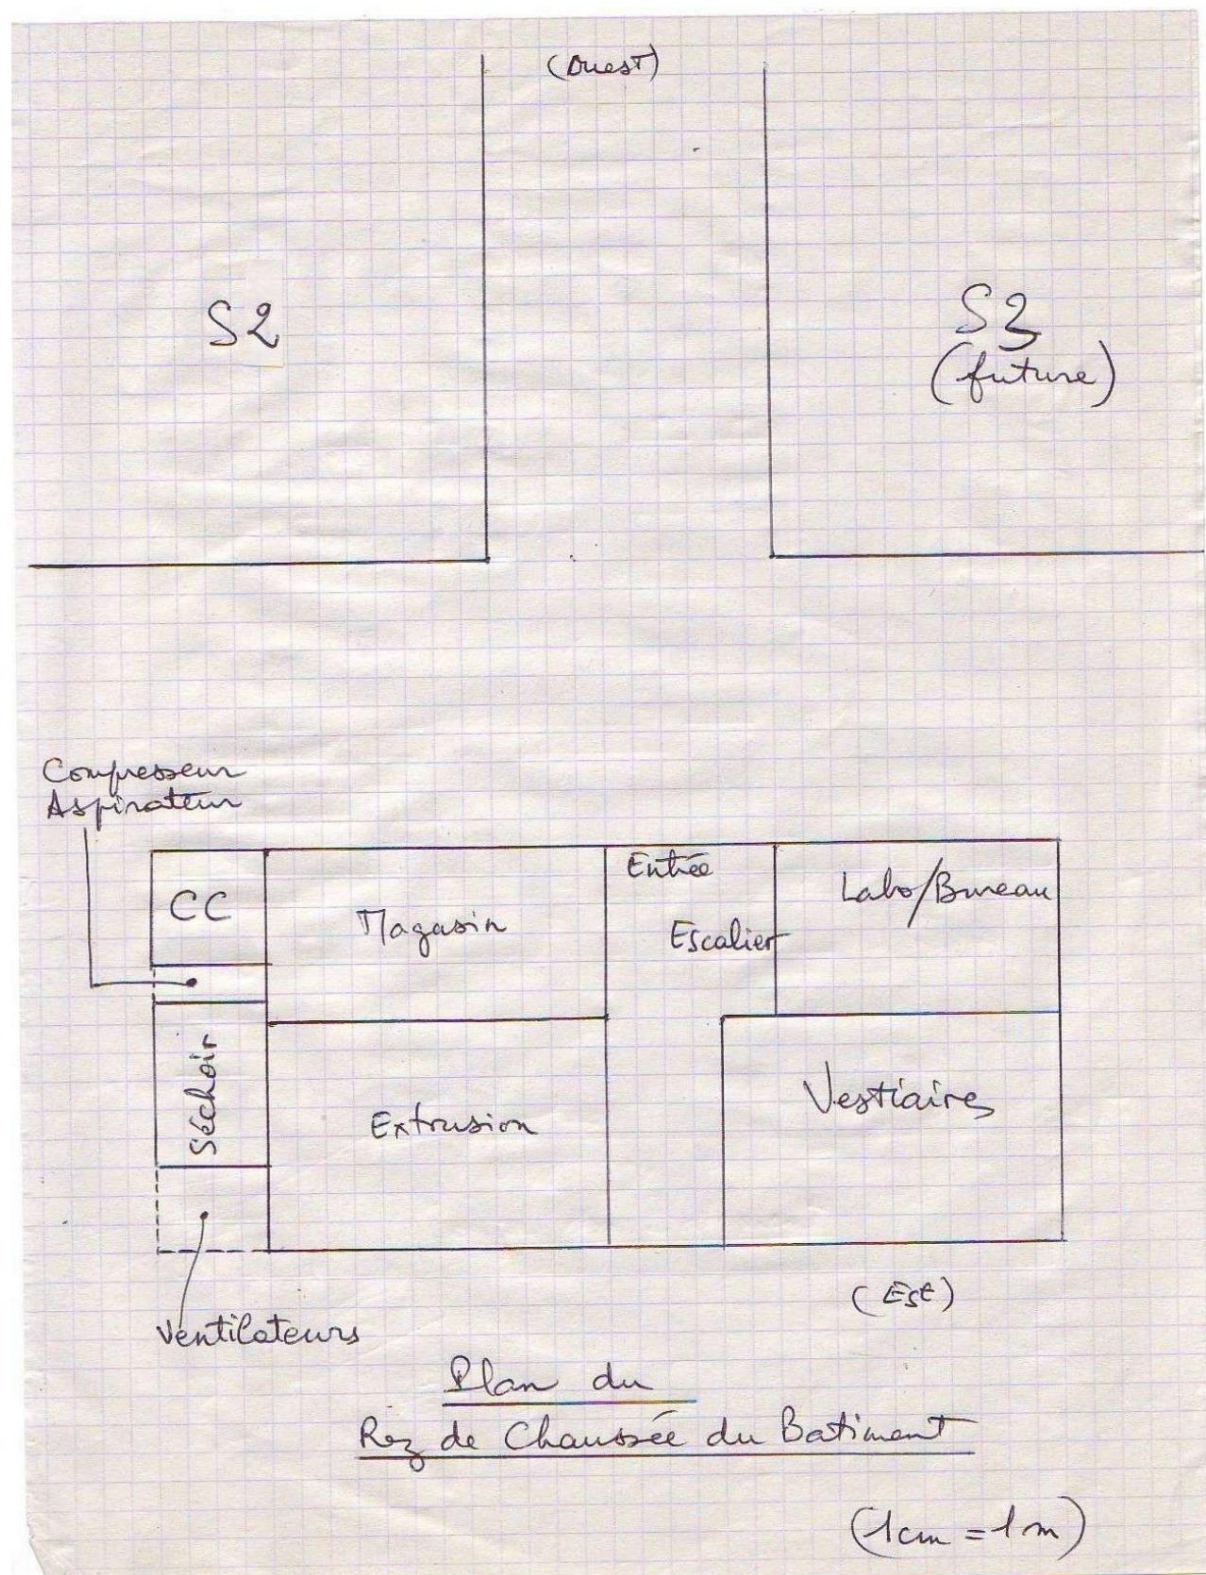 (Ouest)
S2
S3
(future)
Compresseur
Aspirateur
CC
Magasin
Entrée
Escalier
Labo/Bureau
Séchoir
Extrusion
Vestiaires
(Est)
Ventilateurs
Plan du
Rez de Chaussée du Batiment
(1cm = 1m)